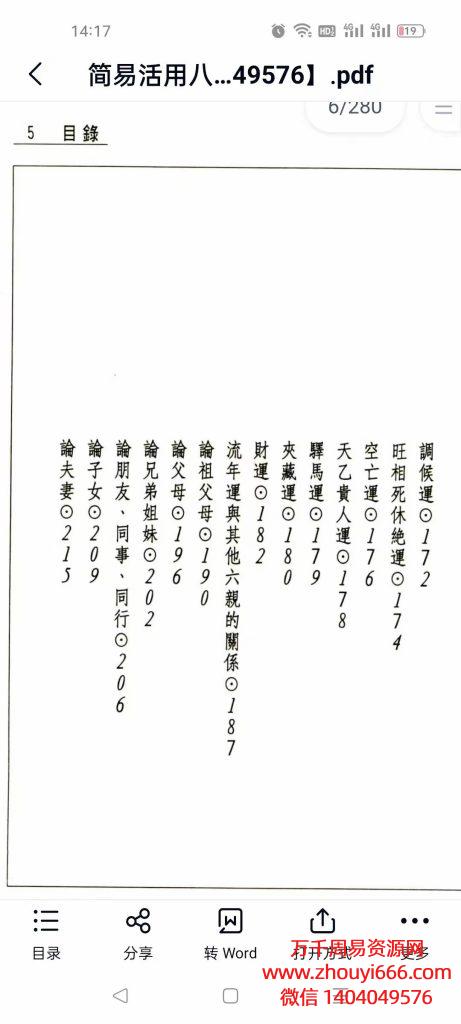 14:17
HD 4G 4G 19
简易活用八...49576】.pdf
6/280
5 目錄
調候運⊙172
旺相死休絕運⊙174
空亡運⊙176
天乙貴人運⊙178
驛馬運⊙179
夾藏運⊙180
財運⊙182
流年運與其他六親的關係⊙187
論祖父母⊙190
論父母⊙196
論兄弟姐妹⊙202
論朋友、同事、同行⊙206
論子女⊙209
論夫妻⊙215
目录
分享
转 Word
打开方式
更多
万千周易资源网
www.zhouyi666.com
微信 1404049576